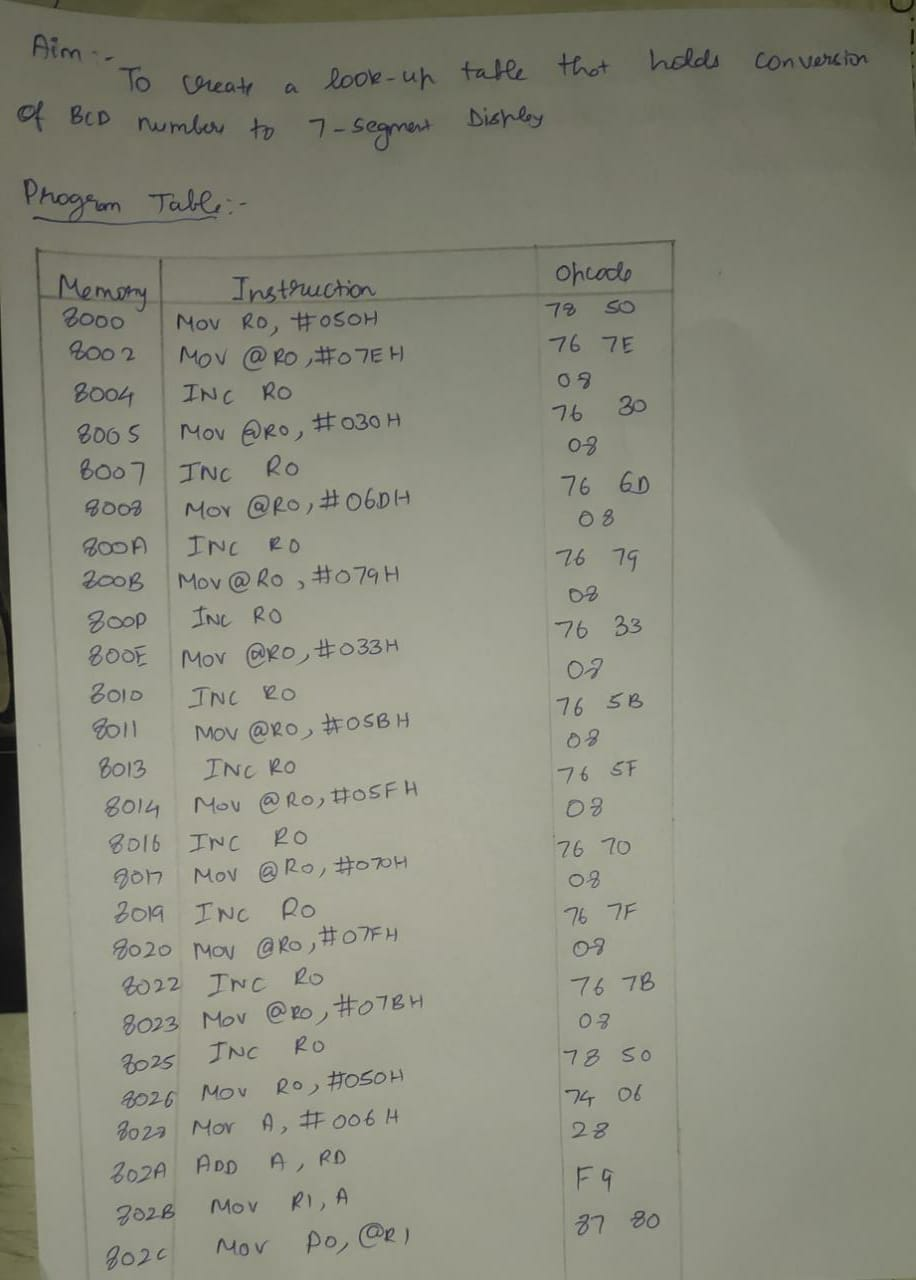 Aim :-
To create a look-up table that holds conversion
of BCD number to 7-segment Display
Program Table:-
Memory Instruction Opcode
8000 Mov R0, #050H 78 50
8002 Mov @R0, #07EH 76 7E
8004 INC R0 08
8005 Mov @R0, #030H 76 30
8007 INC R0 08
8008 Mov @R0, #06DH 76 6D
800A INC R0 08
800B Mov @R0, #079H 76 79
800D INC R0 08
800E Mov @R0, #033H 76 33
8010 INC R0 08
8011 Mov @R0, #05BH 76 5B
8013 INC R0 08
8014 Mov @R0, #05FH 76 5F
8016 INC R0 08
8017 Mov @R0, #070H 76 70
8019 INC R0 08
8020 Mov @R0, #07FH 76 7F
8022 INC R0 08
8023 Mov @R0, #07BH 76 7B
8025 INC R0 08
8026 Mov R0, #050H 78 50
8028 Mov A, #006H 74 06
802A ADD A, R0 28
802B Mov R1, A F9
802C Mov P0, @R1 87 80